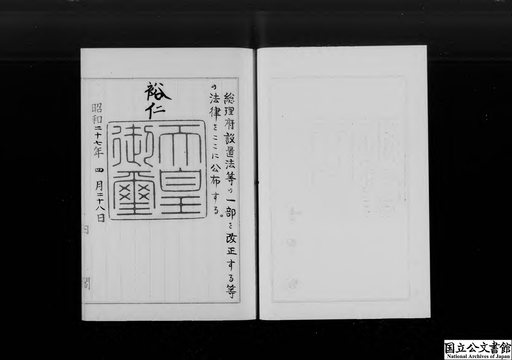 総理府設置法等の一部を改正する等
の法律をここに公布する。
裕仁
天皇
御璽
昭和二十七年 四月二十八日
国立公文書館
National Archives of Japan